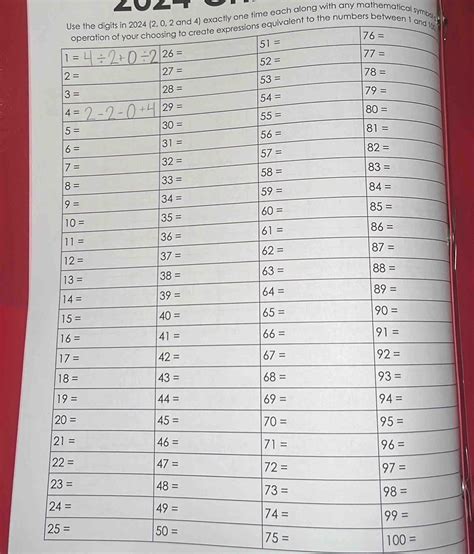 2024
Use the digits in 2024 (2, 0, 2 and 4) exactly one time each along with any mathematical
operation of your choosing to create expressions equivalent to the numbers between 1 and
1 = 4÷2+0÷2
2 =
3 =
4 = 2-2-0+4
5 =
6 =
7 =
8 =
9 =
10 =
11 =
12 =
13 =
14 =
15 =
16 =
17 =
18 =
19 =
20 =
21 =
22 =
23 =
24 =
25 =
26 =
27 =
28 =
29 =
30 =
31 =
32 =
33 =
34 =
35 =
36 =
37 =
38 =
39 =
40 =
41 =
42 =
43 =
44 =
45 =
46 =
47 =
48 =
49 =
50 =
51 =
52 =
53 =
54 =
55 =
56 =
57 =
58 =
59 =
60 =
61 =
62 =
63 =
64 =
65 =
66 =
67 =
68 =
69 =
70 =
71 =
72 =
73 =
74 =
75 =
76 =
77 =
78 =
79 =
80 =
81 =
82 =
83 =
84 =
85 =
86 =
87 =
88 =
89 =
90 =
91 =
92 =
93 =
94 =
95 =
96 =
97 =
98 =
99 =
100 =